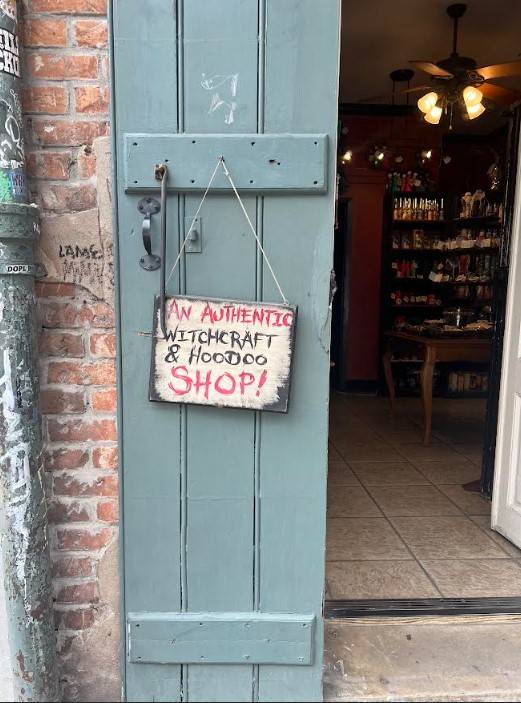 AN AUTHENTIC
WITCHCRAFT
& HOODOO
SHOP!
LAME
DOPL